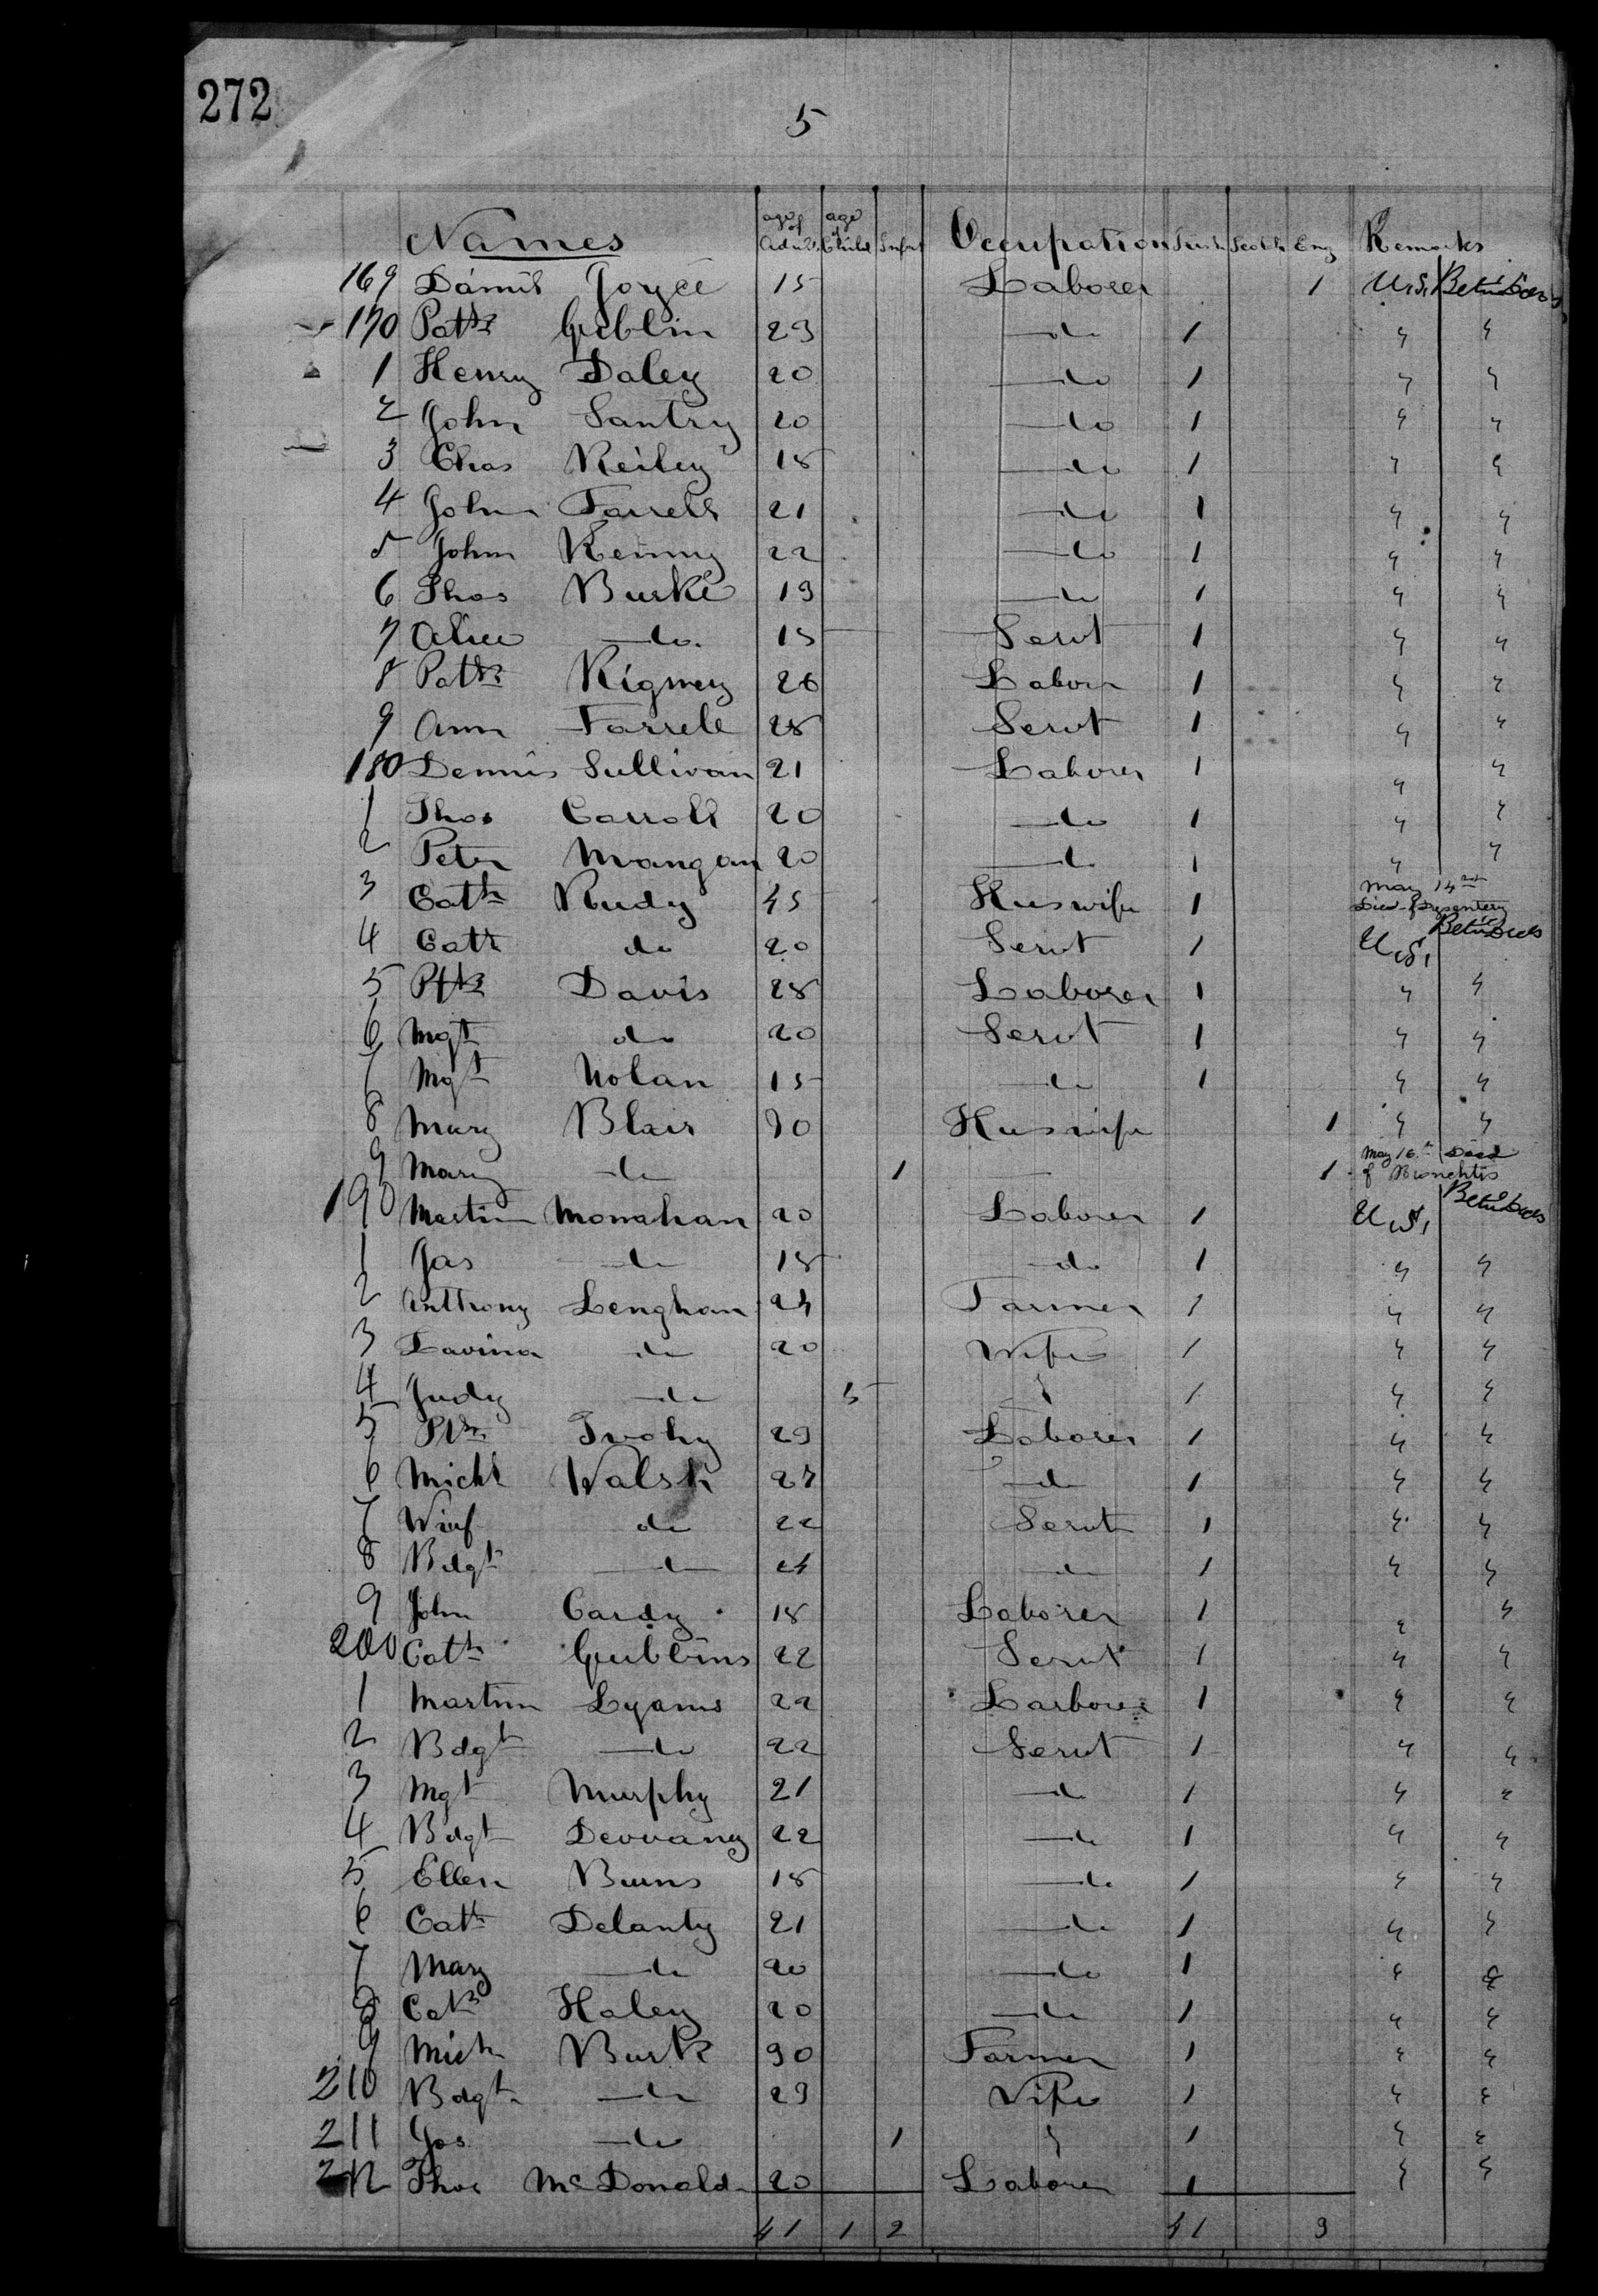 272
5
Names age of Adult age of Child Inft Occupation Irish Scotch Eng Remarks
169 Daniel Joyce 18 Laborer 1 U.S.
170 Patk Giblin 23 do 1 " "
1 Henry Daley 20 do 1 " "
2 John Santry 20 do 1 " "
3 Chas Reiley 18 do 1 " "
4 John Farrell 21 do 1 " "
5 John Kenny 22 do 1 " "
6 Thos Burke 19 do 1 " "
7 Alice do 18 Servt 1 " "
8 Patk Rigney 26 Labor 1 " "
9 Ann Farrell 28 Servt 1 " "
180 Dennis Sullivan 21 Laborer 1 " "
1 Thos Carroll 20 do 1 " "
2 Peter Mangan 20 do 1 " "
3 Cath Rudy 45 Huswife 1 May 14th Died of Dysentery
4 Cath do 20 Servt 1 U.S.
5 Davis 28 Laborer 1 " "
6 Mgt do 20 Servt 1 " "
7 Mgt Nolan 18 do 1 " "
8 Mary Blair 30 Huswife 1 " "
9 Mary do 1 1 May 16th Died of Bronchtis
190 Martin Monahan 20 Laborer 1 U.S.
1 Jas do 18 do 1 " "
2 Anthony Lenghan 24 Farmer 1 " "
3 Lavina do 20 Wife 1 " "
4 Judy do 5 1 " "
5 29 Laborer 1 " "
6 Michl Walsh 27 do 1 " "
7 Winf do 22 Servt 1 " "
8 Bdgt do 24 do 1 " "
9 John Cardy 18 Laborer 1 " "
200 Cath Guibbins 22 Servt 1 " "
1 Martin Lyams 22 Larborer 1 " "
2 Bdgt do 22 Servt 1 " "
3 Mgt Murphy 21 do 1 " "
4 Bdgt 22 do 1 " "
5 Ellen Burns 18 do 1 " "
6 Cath Delanty 21 do 1 " "
7 Mary do 20 do 1 " "
8 Cath Haley 20 do 1 " "
9 Mich Burk 30 Farmer 1 " "
210 Bdgt do 29 Wife 1 " "
211 Jos do 1 1 " "
212 Thos McDonald 20 Laborer 1 " "
41 1 2 41 3